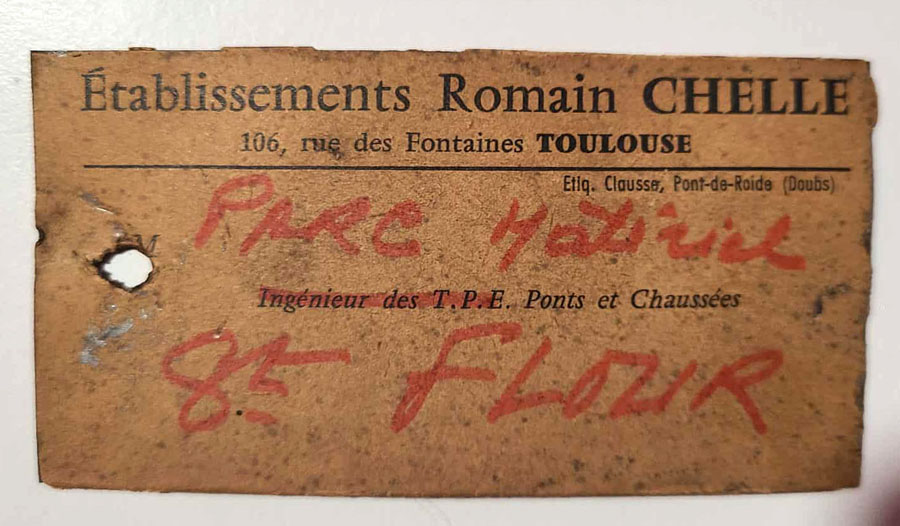 Établissements Romain CHELLE
106, rue des Fontaines TOULOUSE
Etiq. Clausse, Pont-de-Roide (Doubs)
M
PARC Matériel
Ingénieur des T.P.E. Ponts et Chaussées
St FLOUR